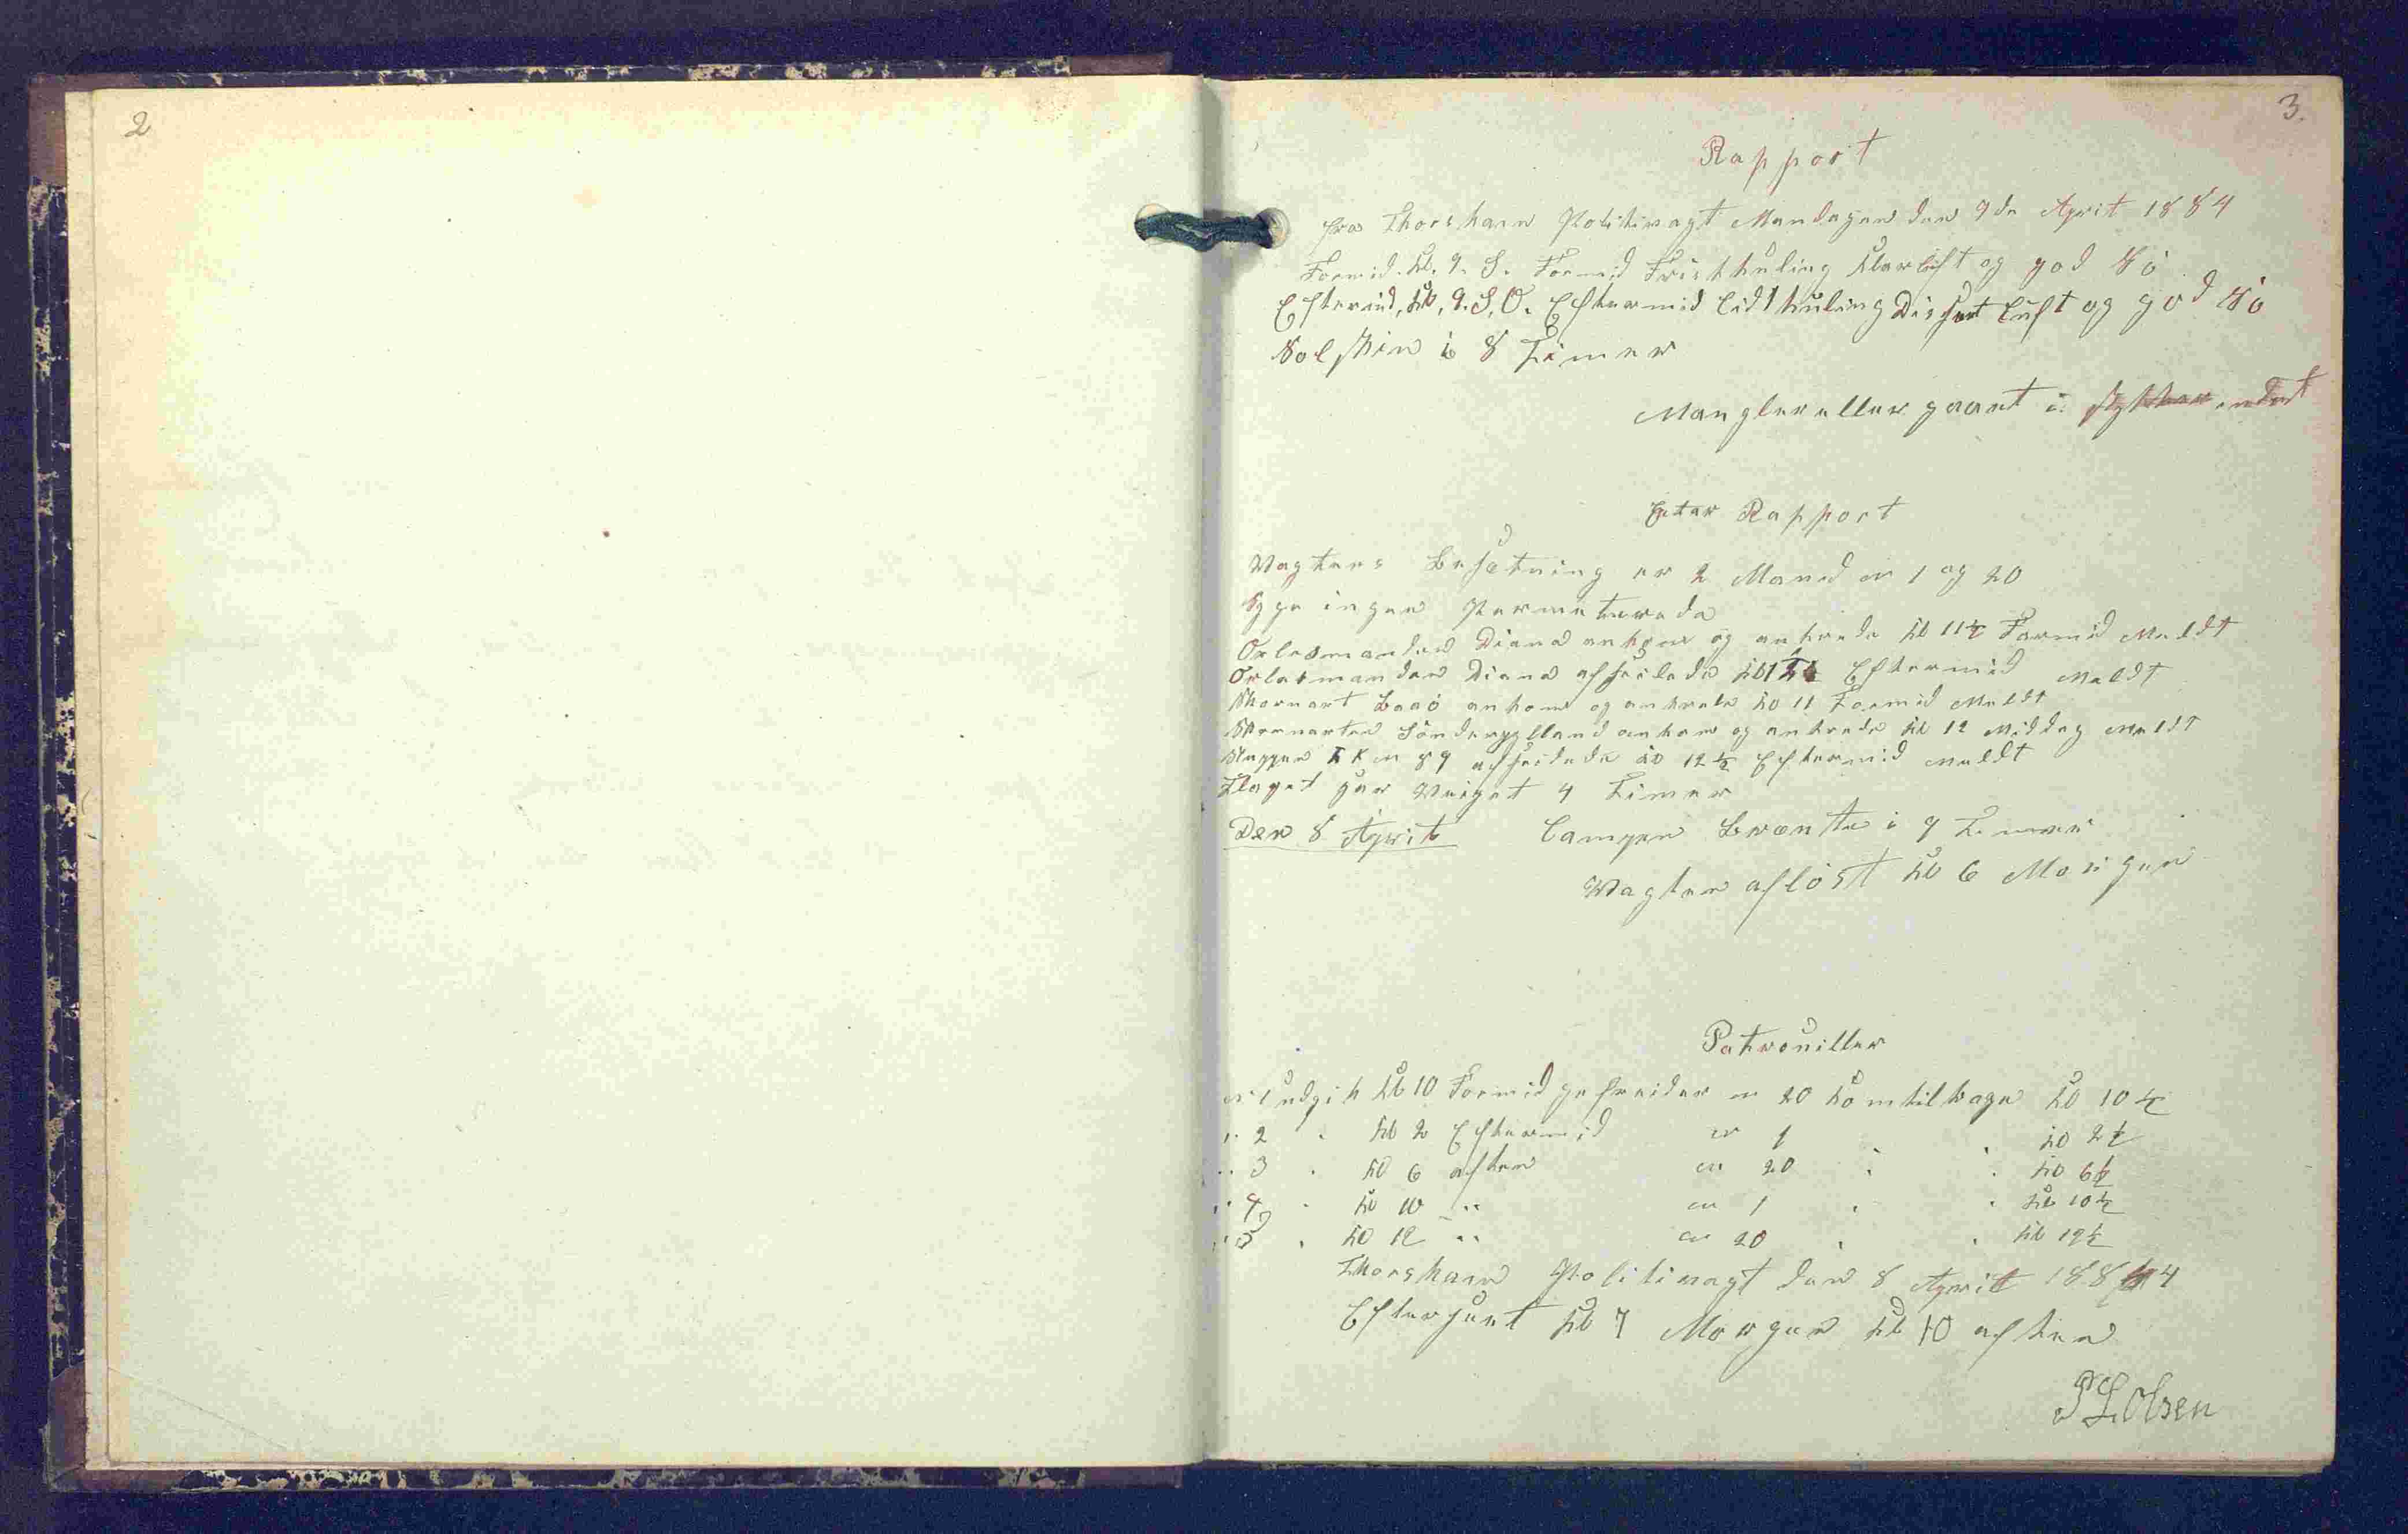 2
3.
Rapport
fra Thorshavn Politivagt Mandagen den 7de April 1884
Formid. Kl. 9. S. Formid Frisk Kuling Klar luft og god Sö
Eftermid. Kl. 9. S. O. Eftermid Lidt Kuling Disset Luft og god Sö
Solskin i 8 Timer
Mangler eller gaaet i stykker intet
Eter Rapport
Vagtens Besætning er 2 Mand № 1 og 20
Syge ingen Permiterede
Orlogsmanden Diana ankom og ankrede Kl 11½ Formid Meldt
Orlogsmanden Diana afseilede Kl Eftermid Meldt
Skonnert ankom og ankrede Kl 11 Formid Meldt
Skonnerten Sönderjylland ankom og ankrede Kl 12 Middag Meldt
Sluppen № 89 afseilede Kl 12½ Eftermid Meldt
Flaget har Veiget 4 Timer
Den 8 April Lampen Brænte i 9 Timer
Vagten aflöst Kl 6 Morgen
Patrouiller
№ 1 udgik Kl 10 Formid gefreider № 20 Kom tilbage Kl 10½
" 2 " Kl 2 Eftermid № 1 " " Kl 2½
" 3 " Kl 6 aften № 20 " " Kl 6½
" 4 " Kl 10 " № 1 " " Kl 10½
" 5 " Kl 12 " № 20 " " Kl 12½
Thorshavn Politivagt den 8 April 1884
Efterseet Kl 7 Morgen Kl 10 aften
Olsen